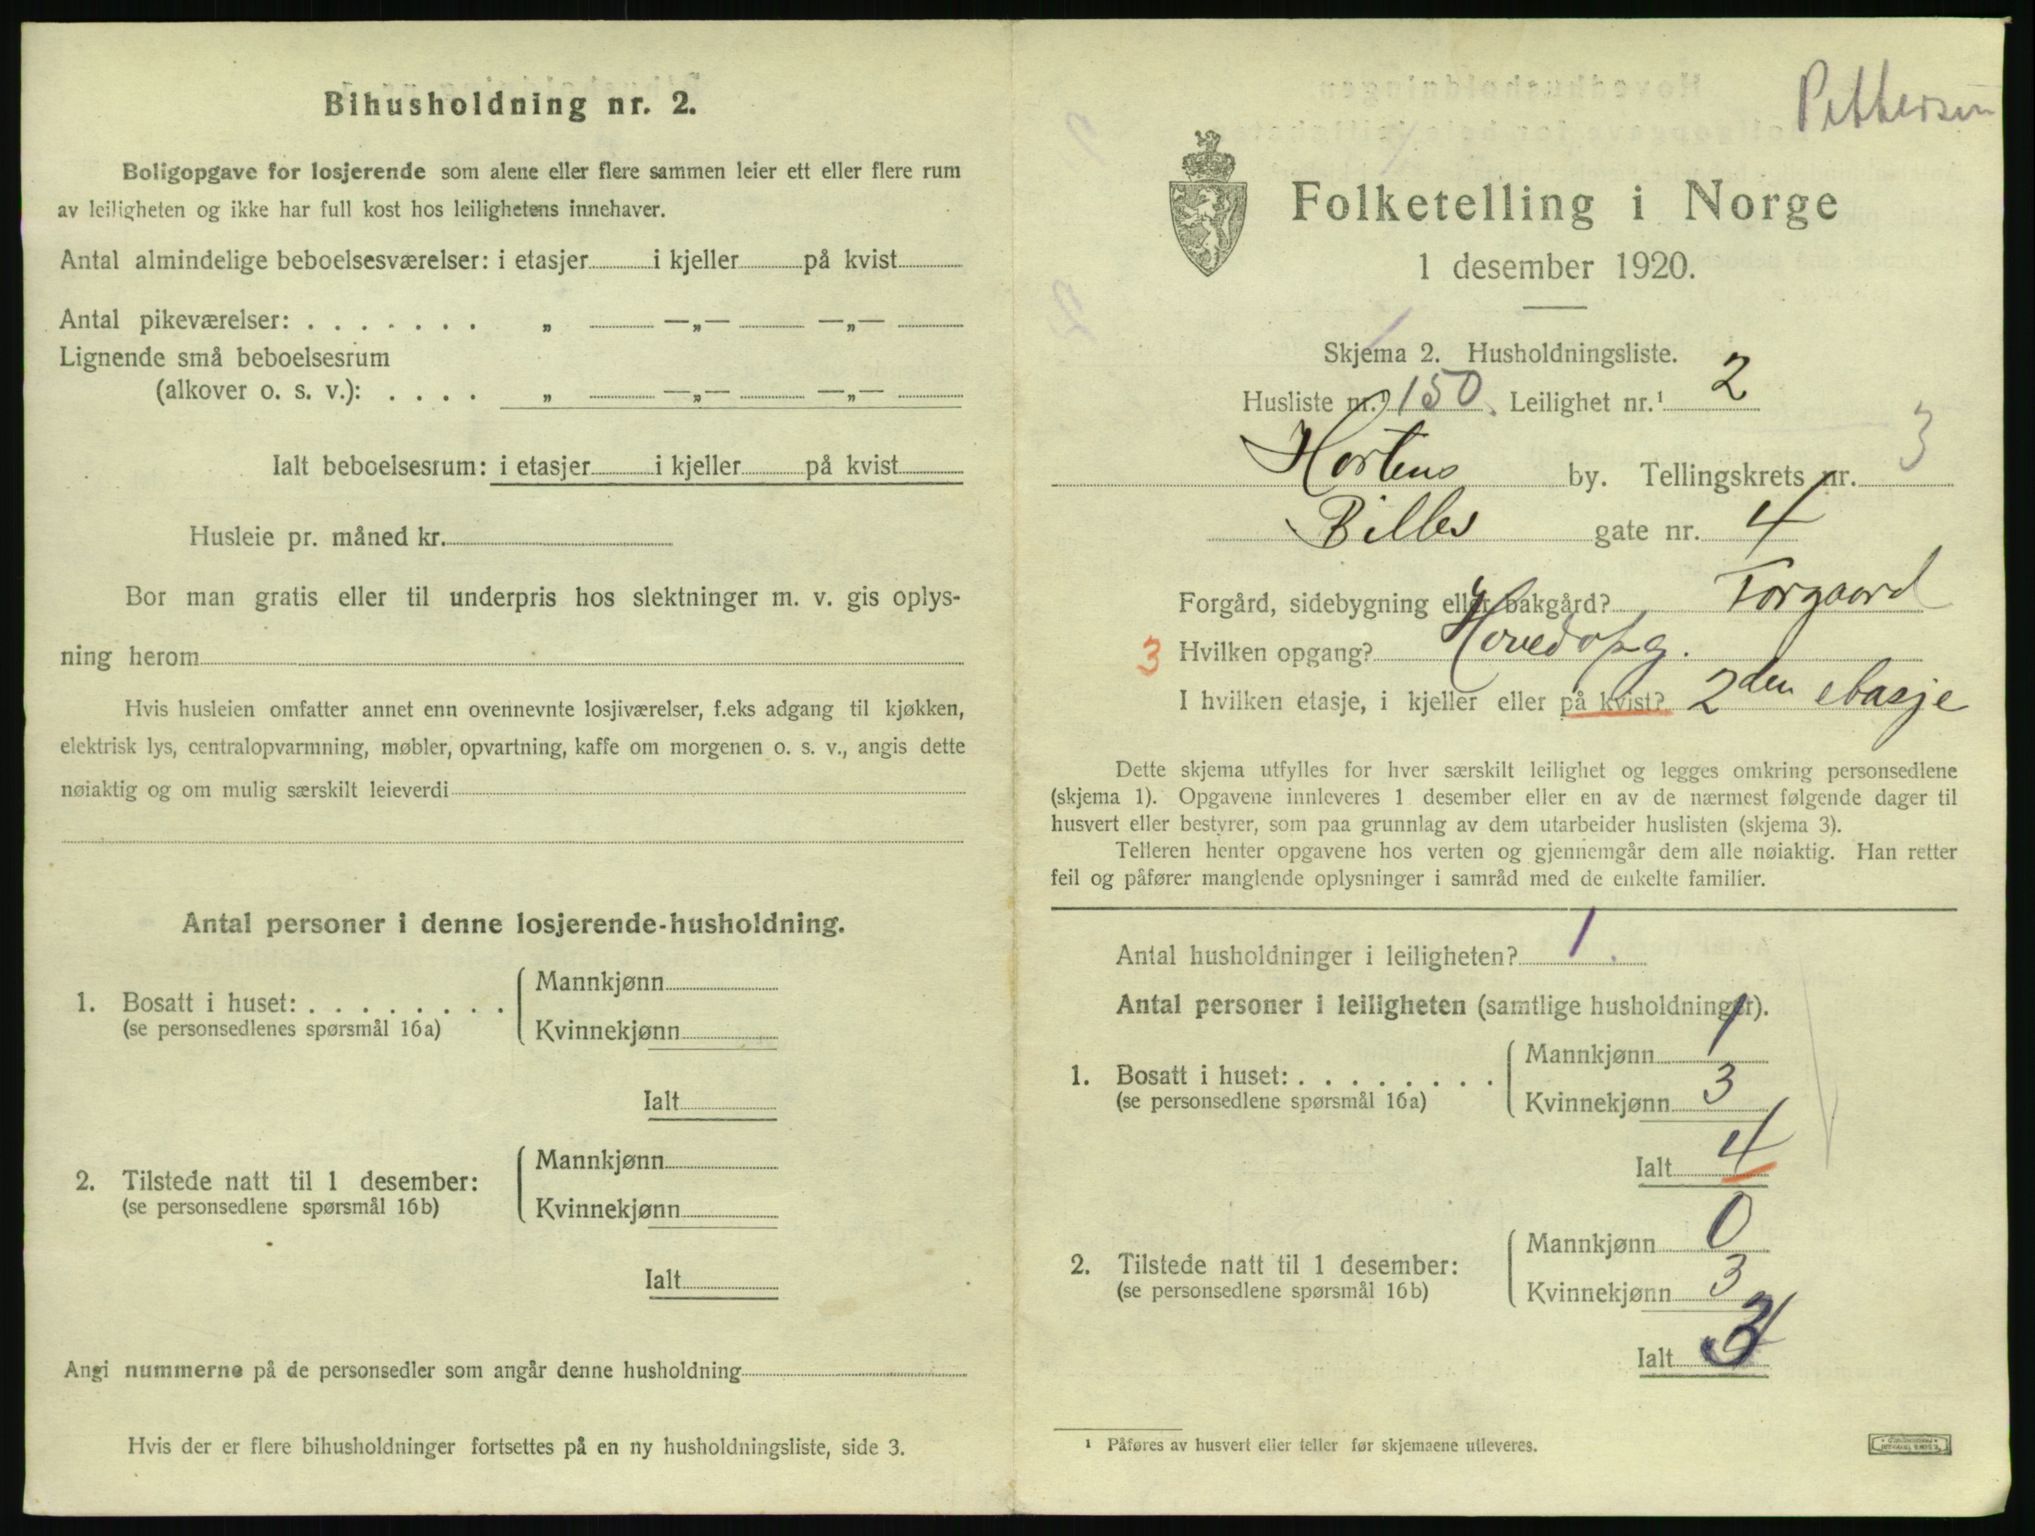 Bihusholdning nr. 2.
Boligopgave for losjerende som alene eller flere sammen leier ett eller flere rum
av leiligheten og ikke har full kost hos leilighetens innehaver.
Antal almindelige beboelsesværelser: i etasjer i kjeller på kvist
Antal pikeværelser: . . . . . . . „ —„— —„—
Lignende små beboelsesrum
(alkover o. s. v.): . . . . „ —„— —„—
Ialt beboelsesrum: i etasjer i kjeller på kvist
Husleie pr. måned kr.
Bor man gratis eller til underpris hos slektninger m. v. gis oplys-
ning herom
Hvis husleien omfatter annet enn ovennevnte losjiværelser, f.eks adgang til kjøkken,
elektrisk lys, centralopvarmning, møbler, opvartning, kaffe om morgenen o. s. v., angis dette
nøiaktig og om mulig særskilt leieverdi
Antal personer i denne losjerende-husholdning.
1. Bosatt i huset: . . . . . . . .
(se personsedlenes spørsmål 16a)
Mannkjønn
Kvinnekjønn
Ialt
2. Tilstede natt til 1 desember:
(se personsedlene spørsmål 16b)
Mannkjønn
Kvinnekjønn
Ialt
Angi nummerne på de personsedler som angår denne husholdning
Hvis der er flere bihusholdninger fortsettes på en ny husholdningsliste, side 3.
Pettersen
Folketelling i Norge
1 desember 1920.
Skjema 2. Husholdningsliste.
Husliste nr. 150. Leilighet nr.¹ 2
Hortens by. Tellingskrets nr. 3
Billes gate nr. 4
Forgård, sidebygning eller bakgård? Forgaard
3 Hvilken opgang? Hovedopg.
I hvilken etasje, i kjeller eller på kvist? 2den etasje
Dette skjema utfylles for hver særskilt leilighet og legges omkring personsedlene
(skjema 1). Opgavene innleveres 1 desember eller en av de nærmest følgende dager til
husvert eller bestyrer, som paa grunnlag av dem utarbeider huslisten (skjema 3).
Telleren henter opgavene hos verten og gjennemgår dem alle nøiaktig. Han retter
feil og påfører manglende oplysninger i samråd med de enkelte familier.
Antal husholdninger i leiligheten? 1.
Antal personer i leiligheten (samtlige husholdninger).
1. Bosatt i huset: . . . . . . . .
(se personsedlene spørsmål 16a)
Mannkjønn 1
Kvinnekjønn 3
Ialt 4
2. Tilstede natt til 1 desember:
(se personsedlene spørsmål 16b)
Mannkjønn 0
Kvinnekjønn 3
Ialt 3
¹ Påføres av husvert eller teller før skjemaene utleveres.